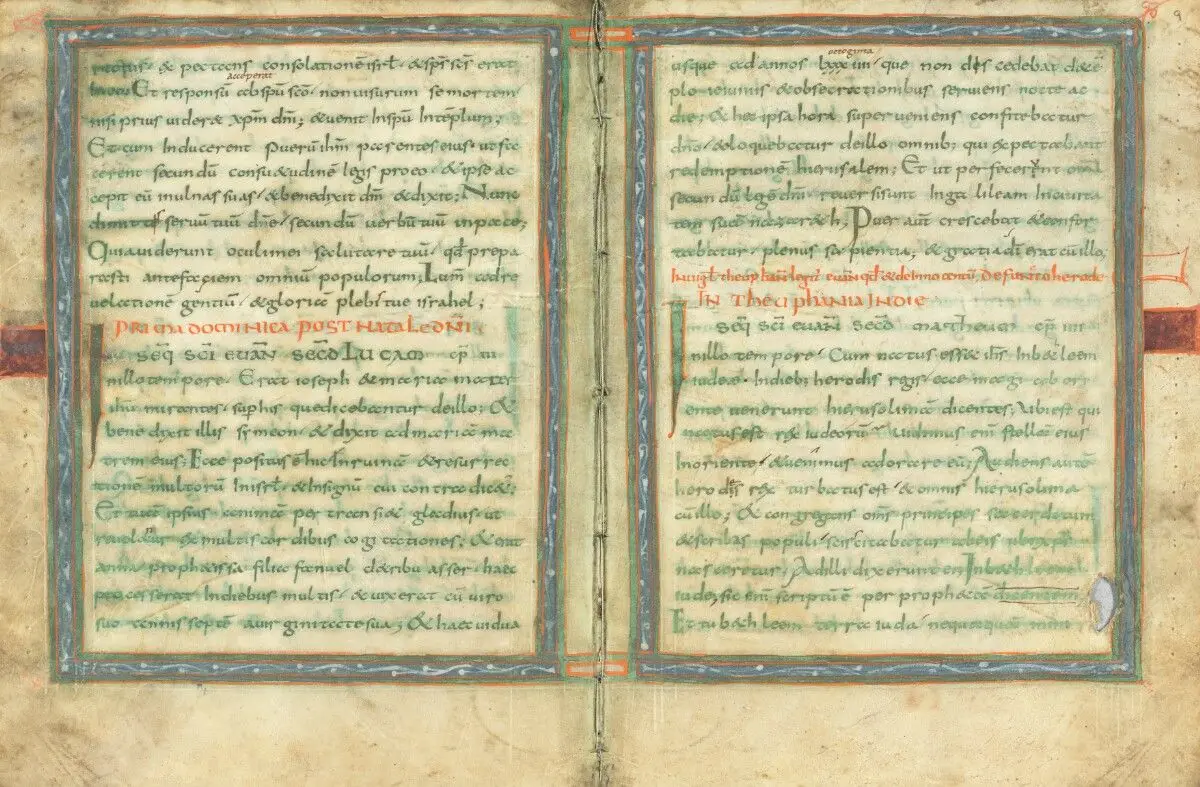 & expectans consolationē isrl̄ · & sp̄s sc̄s erat
acceperat
Et responsū ab sp̄u sc̄o · non uisurum se mortem ·
nisi prius uider& xp̄m dn̄i ; & uenit Insp̄u Intēplum ;
Et cum Inducerent Puerū ih̄m parentes eius · ut fa
cerent secundū consu&udinē legis pro eo · & ipse ac
cepit eū Inulnas suas · & benedixit dn̄i & dixit ; Nunc
dimittis seruū tuū dn̄e · secundū uerbū tuū in pace ;
Quia uiderunt oculi mei salutare tuū · qd̄ prepa
rasti ante faciem omniū populorum ; Lum̄ ad re
uelationē gentiū · & gloriā plebis tue israhel ;
PRIMA DOMINICA POST NATALE DN̄I
SEQ̄ SC̄I EVAN̄ SEC̄D LUCAM CP̄ III
In illo tempore · Erat ioseph & maria mater
ih̄u mirantes · sup̄ his que dicebantur de illo ; &
benedixit illis symeon · & dixit ad mariā ma
trem eius ; Ecce positus ē hic In ruinā & resurrec
tionē multorū In isrl̄ · & In signū cui contradic&ur ;
Et tuā ipsius animā per transi& gladius · ut
reuelentur ex multis cordibus cogitationes ; & erat
anna proph&issa · filia fanuel de tribu asser · haec
processerat In diebus multis · & uixerat cū uiro
suo annis septē a uirginitate sua ; & haec uidua
octoginta
usque ad annos lxxxiiii · que non discedebat de tē
plo ieiuniis & obsecrationibus seruiens nocte ac
die ; & hec ipsa hora superueniens confitebatur
dn̄o · & loquebatur de illo omnib; qui expectabant
redemptionē hierusalem ; Et ut perfecerunt om̄ia
secundū legē dn̄i · reuersi sunt In galileam In ciuita
tem suā nazar&h ; Puer aūt crescebat & confor
tabatur · plenus sapientia · & gratia dī erat cū illo ;
In uigl̄ theophan̄ legr̄ euan̄ qd̄ & de Innocentū · Defuncto herode
IN THEOPHANIA IN DIE
SEQ̄ SC̄I EVAN̄ SEC̄D MATTHEUM CP̄ III
In illo tempore · Cum natus ess& ih̄s In b&leem
iudeae · In dieb; herodis regis · ecce magi ab ori
ente uenerunt hierusolimā dicentes ; Ubi est qui
natus est rex iudeorū · Uidimus eni͂ stellā eius
In oriente · & uenimus adorare eū ; Audiens autē
herodes rex turbatus est · & omnis hierusolima
cū illo ; & congregans om̄s principes sacerdotum
& scribas populi · sciscitabatur ab eis ubi xp̄s
nasceretur ; At illi dixerunt ei In b&hleem
iudę ; sic eni͂ scriptū ē per proph&ā dicentem
Et tu b&hleem terra iuda · nequaquam mini